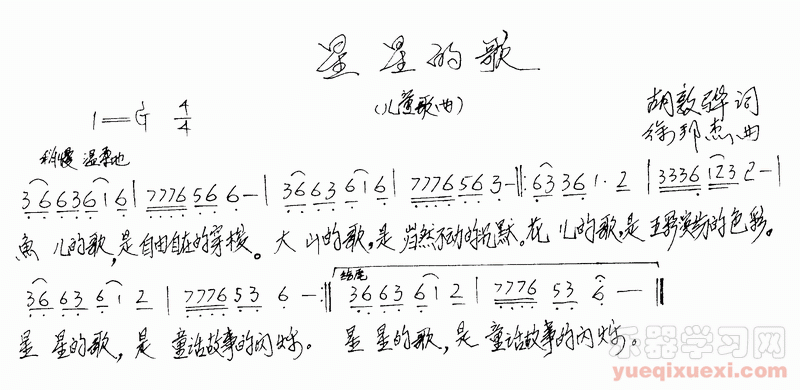 星星的歌
(儿童歌曲)
1=G 4/4
胡敦骅词
徐邦杰曲
稍慢 温柔地
36 63 61 6 | 7776 56 6 — | 36 63 61 6 | 7776 56 3 — |: 63 36 1· 2 | 3336 123 2 — |
鱼儿的歌,是自由自在的穿梭。大山的歌,是岿然不动的沉默。花儿的歌,是五彩缤纷的色彩。
36 63 61 2 | 7776 53 6 — :| 结尾 36 63 61 2 | 7776 53 6 — ‖
星星的歌,是童话故事的闪烁。 星星的歌,是童话故事的闪烁。
乐器学习网
yueqixuexi.com